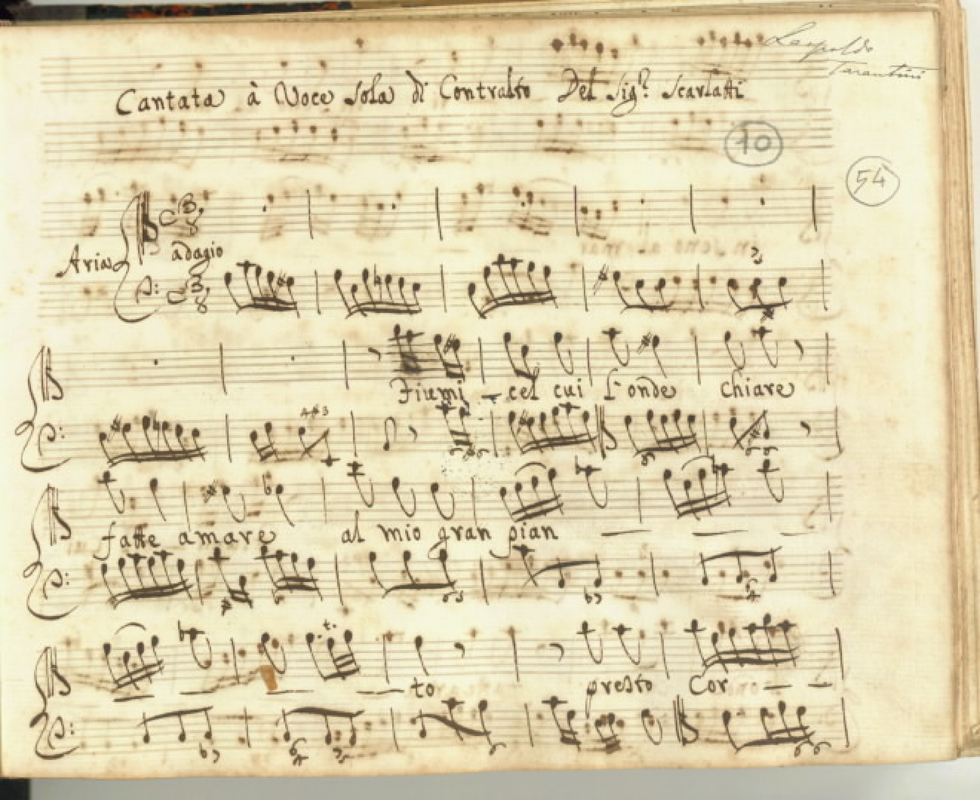 Leopoldo
Tarantini
Cantata à Voce Sola di Contralto Del Sigr. Scarlatti
10
54
Aria
adagio
Fiumi - cel cui l'onde chiare
4#3
fatte amare al mio gran pian — — —
— — — — to presto Cor — —